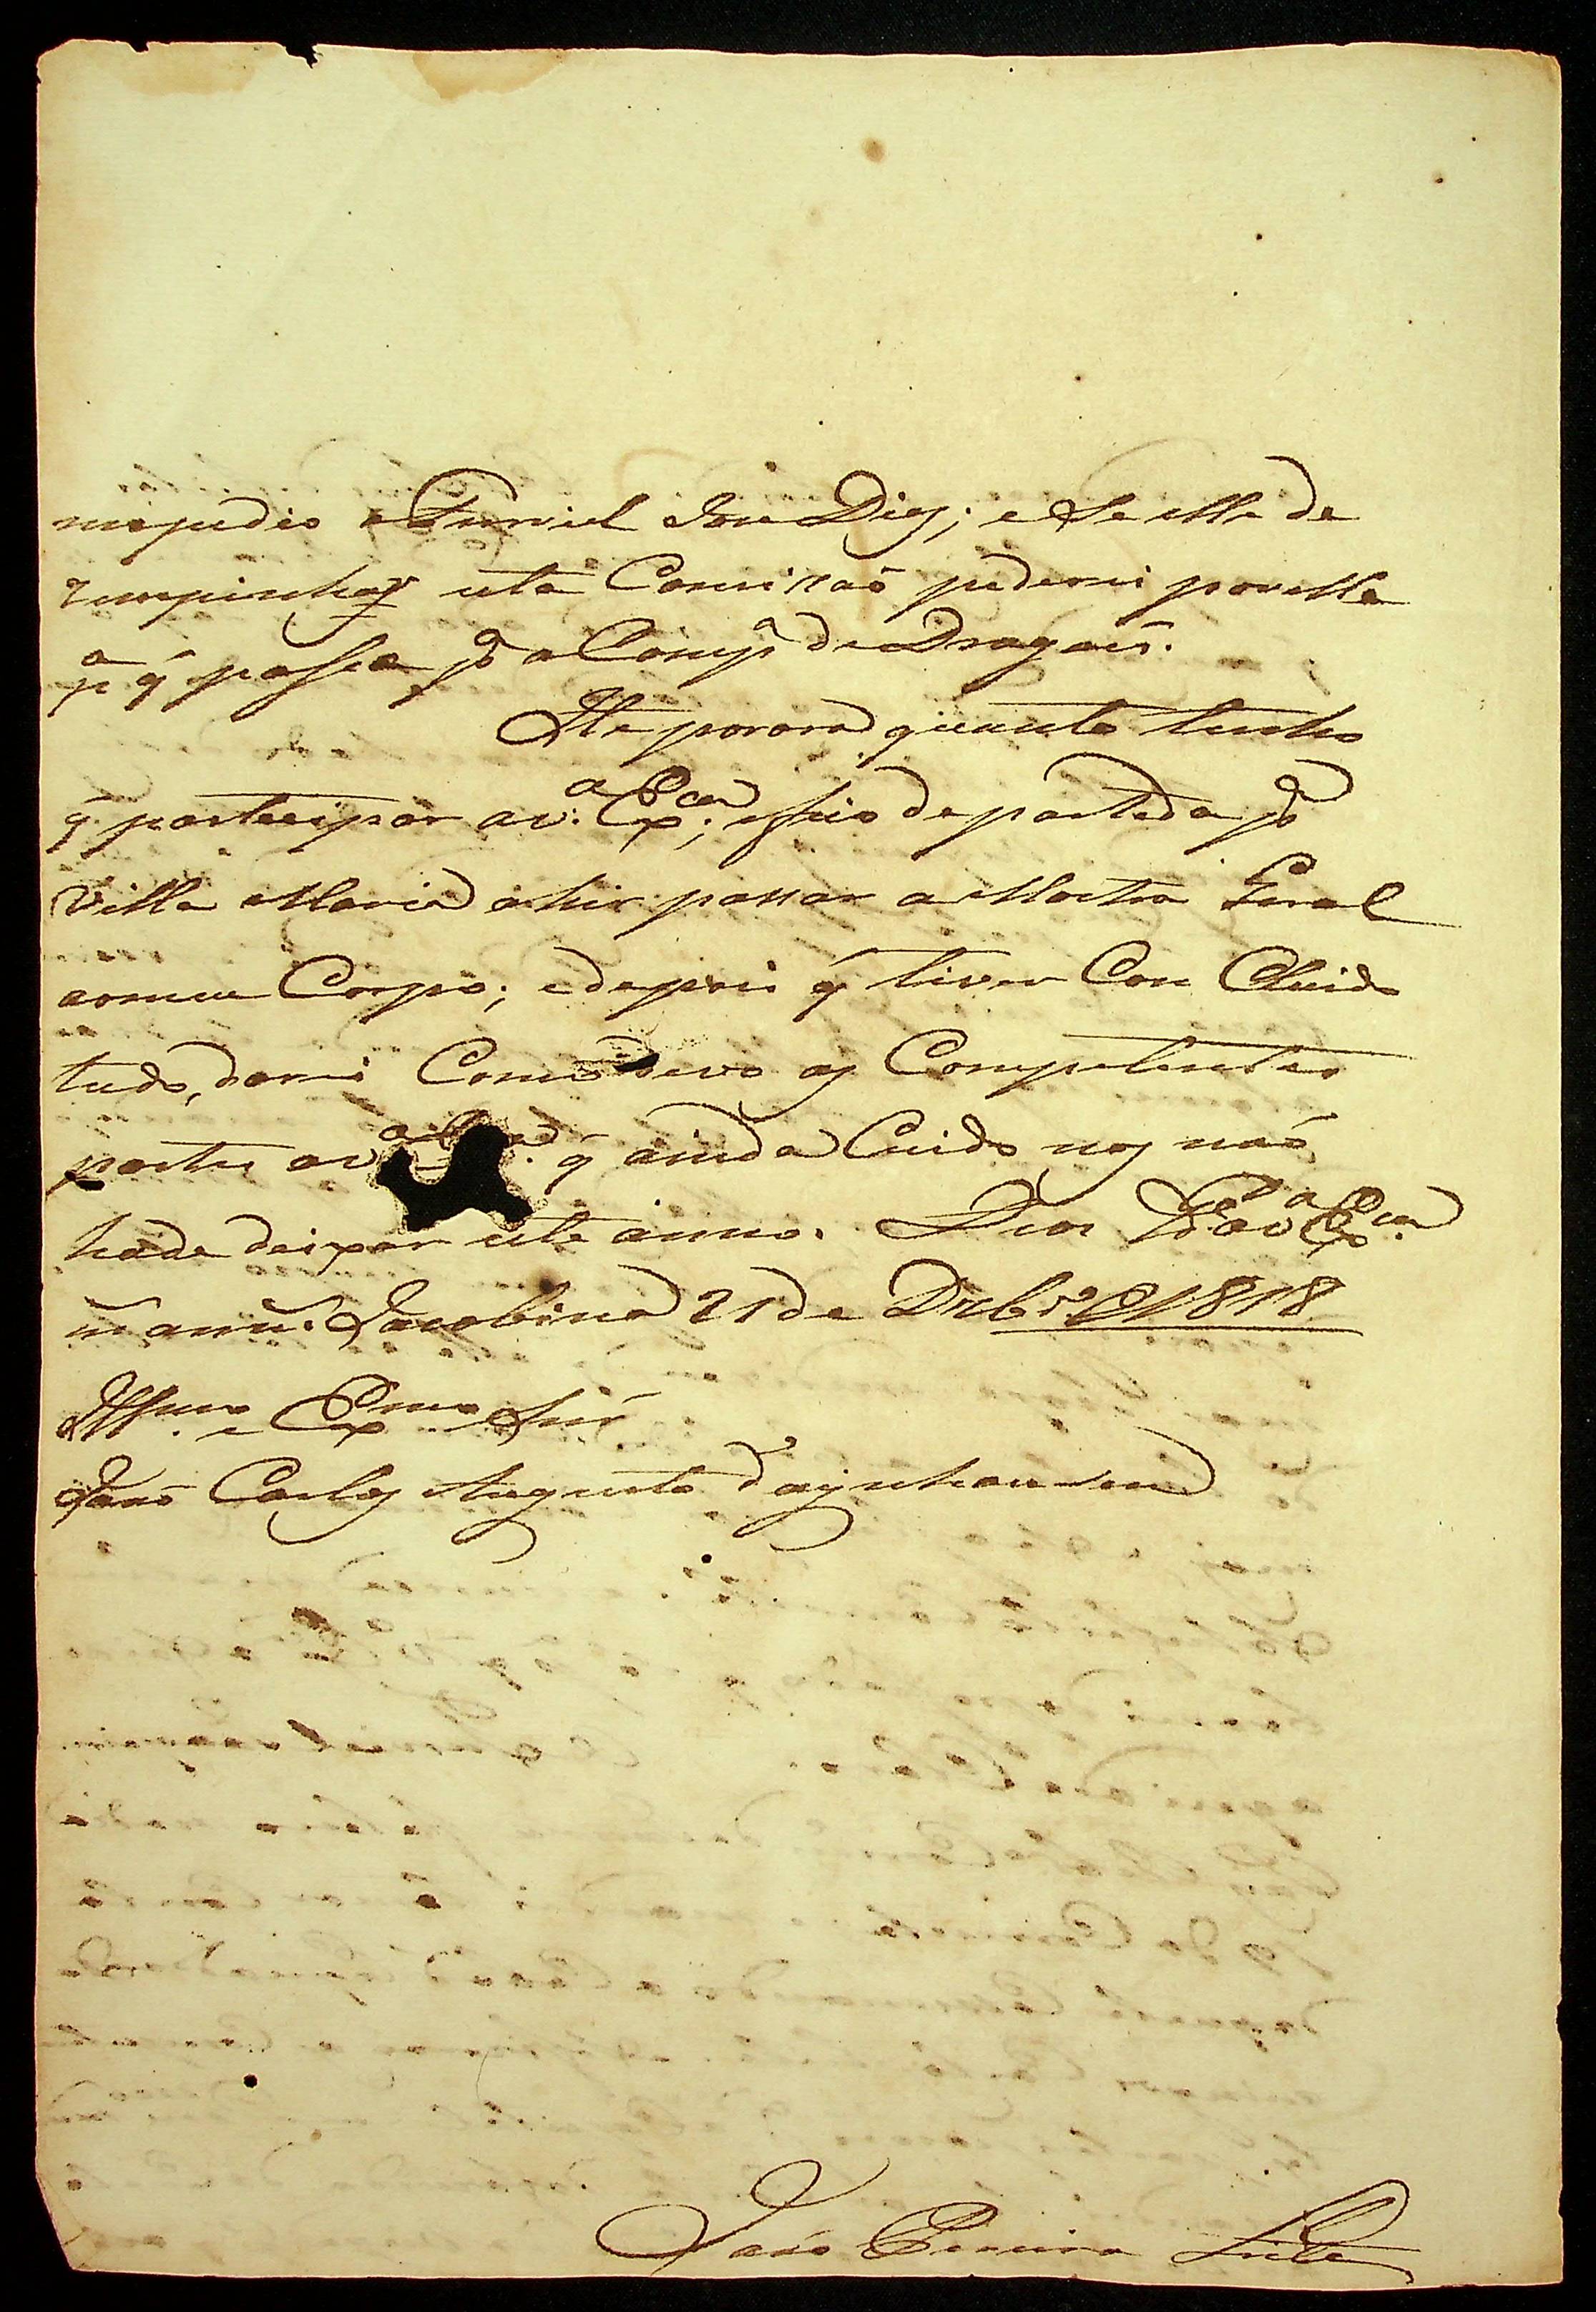 mepedio o Furriel Joze Dias; e Se elle de
zempinhar esta Comissaõ pederei por elle
p.ª q̃ passe p.ª a Comp.ª de Dragoeñs.
Ate por ora hé quanto tenho
q̃ partecipar a V. Ex.ca; e fico de parteda p.ª
Villa Maria a hir passar a Mostra Geral
aomeu Corpo; edepois q̃ tiver Con Cluido
tudo, darei Como devo as Competentes
partes aV.ª q̃ ainda Cuido nos naõ
hade deixar este anno. Deos G.e a V.ª Ex.ca
m. ann.s Jacobina 21 de Dzbr.º de 1818
Ill.mo e Ex.mo Snr
Joaõ Carlos Augusto d'aynhausen
Joaõ Pereira Leite